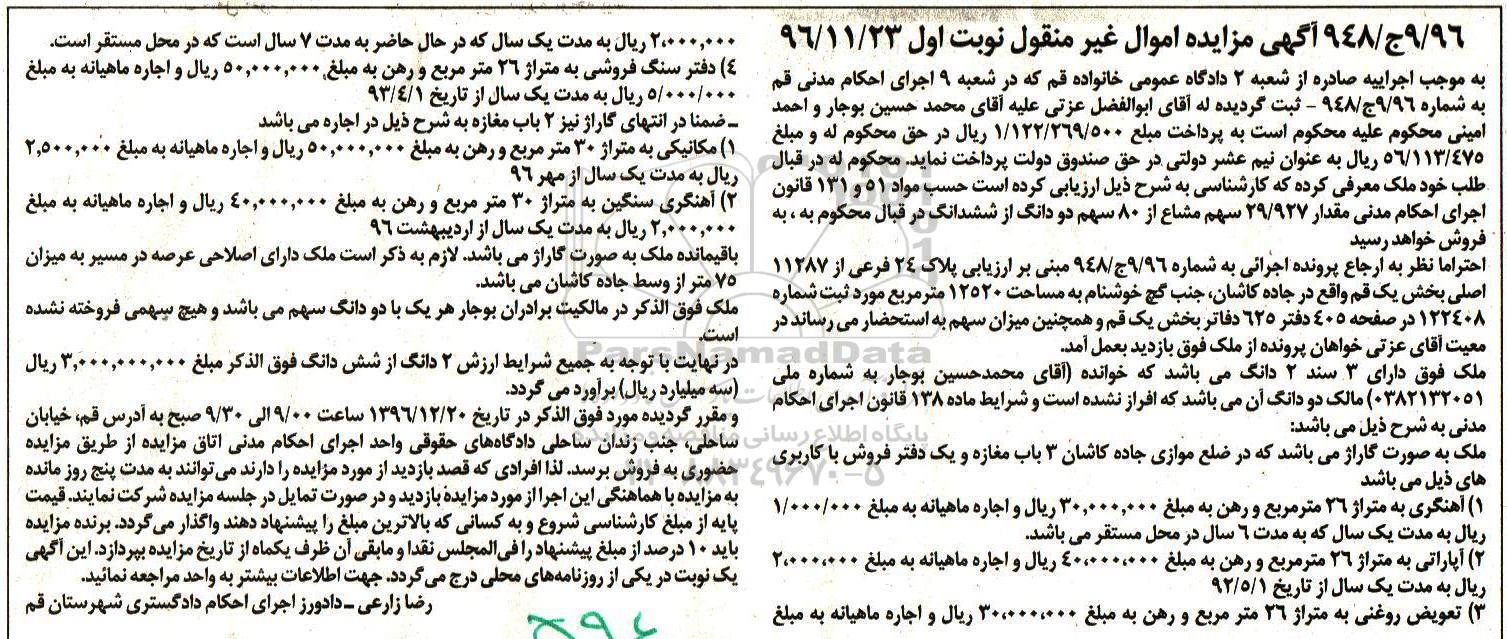 ۹/۹۶ج/۹۴۸ آگهی مزایده اموال غیر منقول نوبت اول ۹۶/۱۱/۲۳
به موجب اجراییه صادره از شعبه ۲ دادگاه عمومی خانواده قم که در شعبه ۹ اجرای احکام مدنی قم
به شماره ۹/۹۶ج/۹۴۸ - ثبت گردیده له آقای ابوالفضل عزتی علیه آقای محمد حسین بوجار و احمد
امینی محکوم علیه محکوم است به پرداخت مبلغ ۱/۱۲۲/۲۶۹/۵۰۰ ریال در حق محکوم له و مبلغ
۵۶/۱۱۳/۴۷۵ ریال به عنوان نیم عشر دولتی در حق صندوق دولت پرداخت نماید. محکوم له در قبال
طلب خود ملک معرفی کرده که کارشناسی به شرح ذیل ارزیابی کرده است حسب مواد ۵۱ و ۱۳۱ قانون
اجرای احکام مدنی مقدار ۲۹/۹۲۷ سهم مشاع از ۸۰ سهم دو دانگ از ششدانگ در قبال محکوم به ، به
فروش خواهد رسید
احتراما نظر به ارجاع پرونده اجرائی به شماره ۹/۹۶ج/۹۴۸ مبنی بر ارزیابی پلاک ۲۴ فرعی از ۱۱۲۸۷
اصلی بخش یک قم واقع در جاده کاشان، جنب گچ خوشنام به مساحت ۱۲۵۲۰ مترمربع مورد ثبت شماره
۱۲۲۴۰۸ در صفحه ۴۰۵ دفتر ۶۲۵ دفاتر بخش یک قم و همچنین میزان سهم به استحضار می رساند در
معیت آقای عزتی خواهان پرونده از ملک فوق بازدید بعمل آمد.
ملک فوق دارای ۳ سند ۲ دانگ می باشد که خوانده (آقای محمدحسین بوجار به شماره ملی
۰۳۸۲۱۳۲۰۵۱) مالک دو دانگ آن می باشد که افراز نشده است و شرایط ماده ۱۳۸ قانون اجرای احکام
مدنی به شرح ذیل می باشد:
ملک به صورت گاراژ می باشد که در ضلع موازی جاده کاشان ۳ باب مغازه و یک دفتر فروش با کاربری
های ذیل می باشد
۱) آهنگری به متراژ ۲۶ مترمربع و رهن به مبلغ ۳۰,۰۰۰,۰۰۰ ریال و اجاره ماهیانه به مبلغ ۱/۰۰۰/۰۰۰
ریال به مدت یک سال که به مدت ۶ سال در محل مستقر می باشد.
۲) آپاراتی به متراژ ۲۶ مترمربع و رهن به مبلغ ۴۰,۰۰۰,۰۰۰ ریال و اجاره ماهیانه به مبلغ ۲,۰۰۰,۰۰۰
ریال به مدت یک سال از تاریخ ۹۲/۵/۱
۳) تعویض روغنی به متراژ ۲۶ متر مربع و رهن به مبلغ ۳۰,۰۰۰,۰۰۰ ریال و اجاره ماهیانه به مبلغ
۲,۰۰۰,۰۰۰ ریال به مدت یک سال که در حال حاضر به مدت ۷ سال است که در محل مستقر است.
۴) دفتر سنگ فروشی به متراژ ۲۶ متر مربع و رهن به مبلغ ۵۰,۰۰۰,۰۰۰ ریال و اجاره ماهیانه به مبلغ
۵/۰۰۰/۰۰۰ ریال به مدت یک سال از تاریخ ۹۳/۴/۱
ـ ضمنا در انتهای گاراژ نیز ۲ باب مغازه به شرح ذیل در اجاره می باشد
۱) مکانیکی به متراژ ۳۰ متر مربع و رهن به مبلغ ۵۰,۰۰۰,۰۰۰ ریال و اجاره ماهیانه به مبلغ ۲,۵۰۰,۰۰۰
ریال به مدت یک سال از مهر ۹۶
۲) آهنگری سنگین به متراژ ۳۰ متر مربع و رهن به مبلغ ۴۰,۰۰۰,۰۰۰ ریال و اجاره ماهیانه به مبلغ
۲,۰۰۰,۰۰۰ ریال به مدت یک سال از اردیبهشت ۹۶
باقیمانده ملک به صورت گاراژ می باشد. لازم به ذکر است ملک دارای اصلاحی عرصه در مسیر به میزان
۷۵ متر از وسط جاده کاشان می باشد.
ملک فوق الذکر در مالکیت برادران بوجار هر یک با دو دانگ سهم می باشد و هیچ سهمی فروخته نشده
است.
در نهایت با توجه به جمیع شرایط ارزش ۲ دانگ از شش دانگ فوق الذکر مبلغ ۳,۰۰۰,۰۰۰,۰۰۰ ریال
(سه میلیارد ریال) برآورد می گردد.
و مقرر گردیده مورد فوق الذکر در تاریخ ۱۳۹۶/۱۲/۲۰ ساعت ۹/۰۰ الی ۹/۳۰ صبح به آدرس قم، خیابان
ساحلی، جنب زندان ساحلی دادگاه‌های حقوقی واحد اجرای احکام مدنی اتاق مزایده از طریق مزایده
حضوری به فروش برسد. لذا افرادی که قصد بازدید از مورد مزایده را دارند می‌توانند به مدت پنج روز مانده
به مزایده با هماهنگی این اجرا از مورد مزایده بازدید و در صورت تمایل در جلسه مزایده شرکت نمایند. قیمت
پایه از مبلغ کارشناسی شروع و به کسانی که بالاترین مبلغ را پیشنهاد دهند واگذار می‌گردد. برنده مزایده
باید ۱۰ درصد از مبلغ پیشنهاد را فی‌المجلس نقدا و مابقی آن ظرف یکماه از تاریخ مزایده بپردازد. این آگهی
یک نوبت در یکی از روزنامه‌های محلی درج می‌گردد. جهت اطلاعات بیشتر به واحد مراجعه نمائید.
رضا زارعی ـ دادورز اجرای احکام دادگستری شهرستان قم
ParsNamadData
پایگاه اطلاع رسانی مناقصه و مزایده
۰۲۱-۸۸۳۴۹۶۷۰-۵